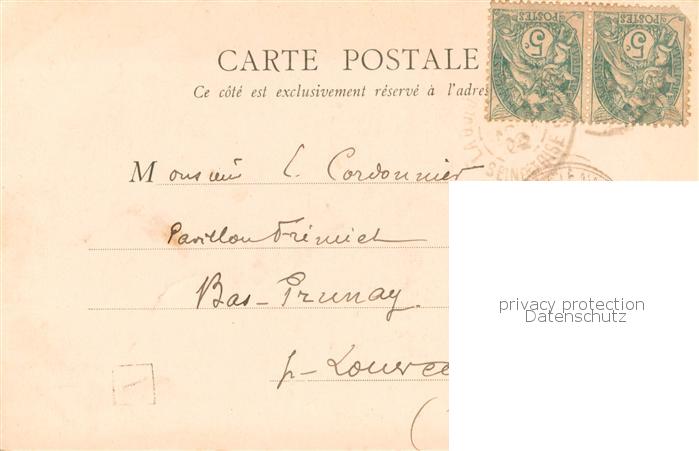 5c 5c
POSTES POSTES
CARTE POSTALE
Ce côté est exclusivement réservé à l'adres
SEINE
OISE
Monsieur L. Cordonnier
Pavillon Frémiet
Bas-Prunay
privacy protection
Datenschutz